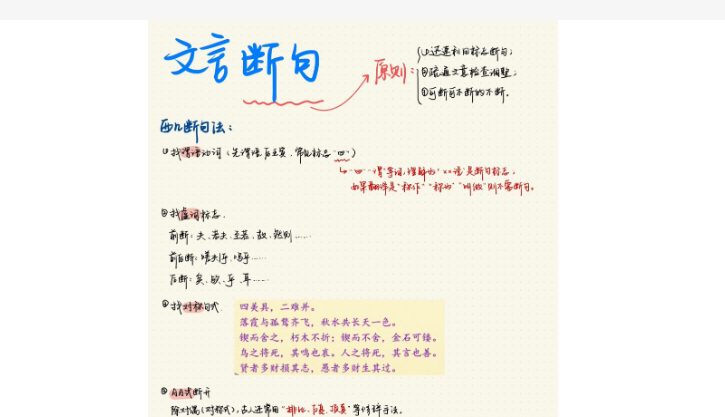 文言断句
原则：
①迅速利用标志断句；
②疏通文意检查调整；
③可断可不断的不断。
断句法：
①找谓语动词（先谓语后主宾，常见标志"曰"）
"曰""谓"等词，理解为"××说"是断句标志；
如果翻译是"称作""称为""叫做"则不需断句。
②找虚词标志。
前断：夫、若夫、至若、故、然则……
前后断：嗟夫、嗟乎……
后断：矣、欤、乎、耳……
③找对称句式
四美具，二难并。
落霞与孤鹜齐飞，秋水共长天一色。
锲而舍之，朽木不折；锲而不舍，金石可镂。
鸟之将死，其鸣也哀。人之将死，其言也善。
贤者多财损其志，愚者多财生其过。
断开
除对偶(对称式)，古人还常用"排比、顶真"等修辞方法。